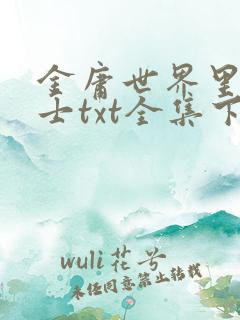 金庸世界里
士txt全集下
wuli花兮
未经同意禁止转载